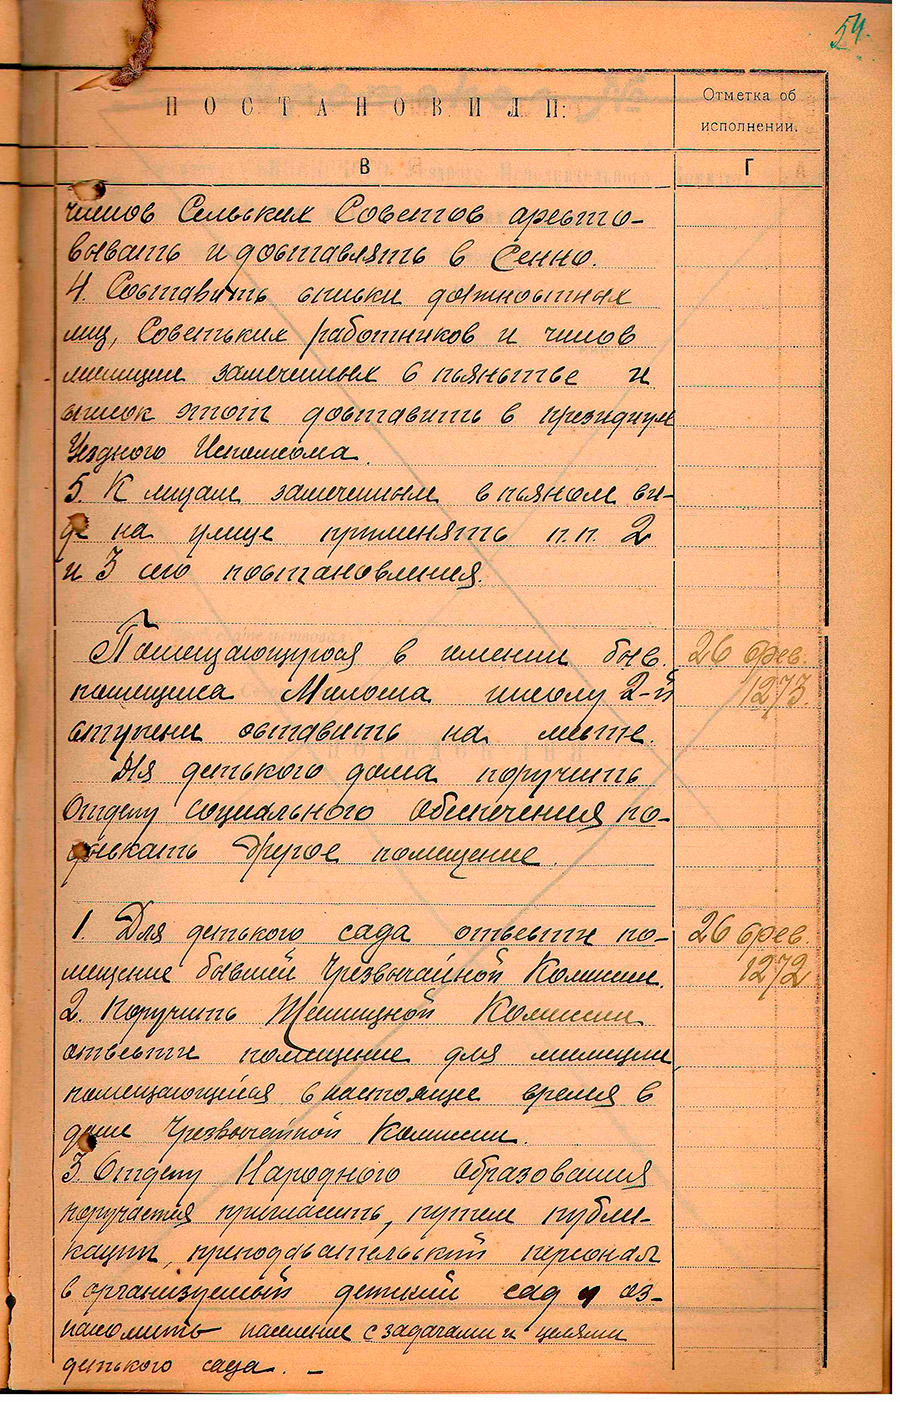 54.
ПОСТАНОВИЛИ:
Отметка об
исполнении.
В
Г
членов Сельских Советов аресто-
вывать и доставлять в Сенно.
4. Составить списки должностных
лиц, Советских работников и членов
милиции замеченных в пьянстве и
список этот доставить в президиум
Уездного Исполкома.
5. К лицам замеченным в пьяном ви-
де на улице применять п.п. 2
и 3 сего постановления.
Помещающуюся в имении быв.
26 фев.
помещика Милоша школу 2-й
1273.
ступени оставить на месте.
Для детского дома поручить
Отделу социального обеспечения по-
дыскать другое помещение.
1 Для детского сада отвести по-
26 фев.
мещение бывшей Чрезвычайной Комиссии.
1272
2. Поручить Жилищной Комиссии
отвести помещение для милиции
помещающейся в настоящее время в
доме Чрезвычайной Комиссии.
3. Отделу Народного Образования
поручается пригласить, путем публи-
кации, преподавательский персонал
в организуемый детский сад и оз-
накомить население с задачами и целями
детского сада. –